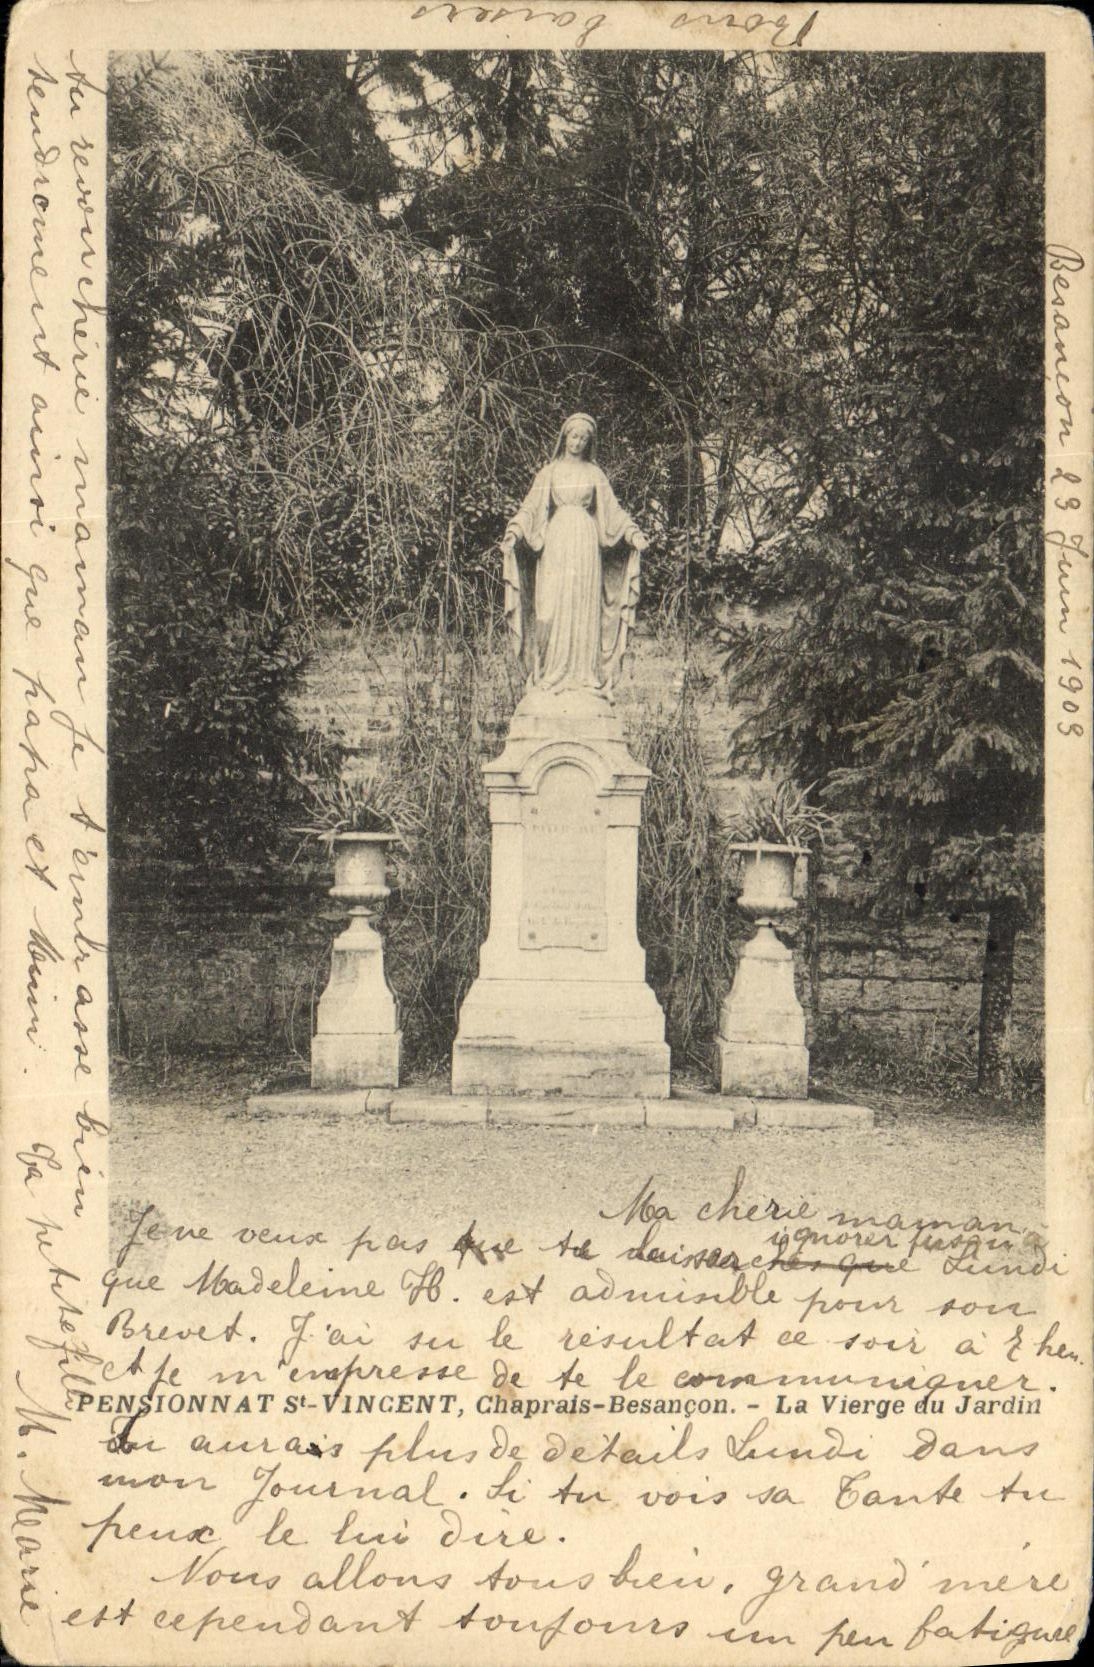 Besançon 23 Juin 1903
Ma cherie maman
Je ne veux pas que te laisser ignorer jusqu'à Lundi
que Madeleine H. est admisible pour son
Brevet. J'ai su le résultat ce soir à heu.
et je m'empresse de te le communiquer.
PENSIONNAT St-VINCENT, Chaprais-Besançon. - La Vierge du Jardin
Tu aurais plus de détails Lundi dans
mon Journal. Si tu vois sa Tante tu
peux le lui dire.
Nous allons tous bien, grand'mére
est cependant toujours un peu fatiguée
Au revoir chérie maman je t'embrasse bien
tendrement ainsi que papa et Mimi.
Ta petite fille
M. Marie
Bons baisers